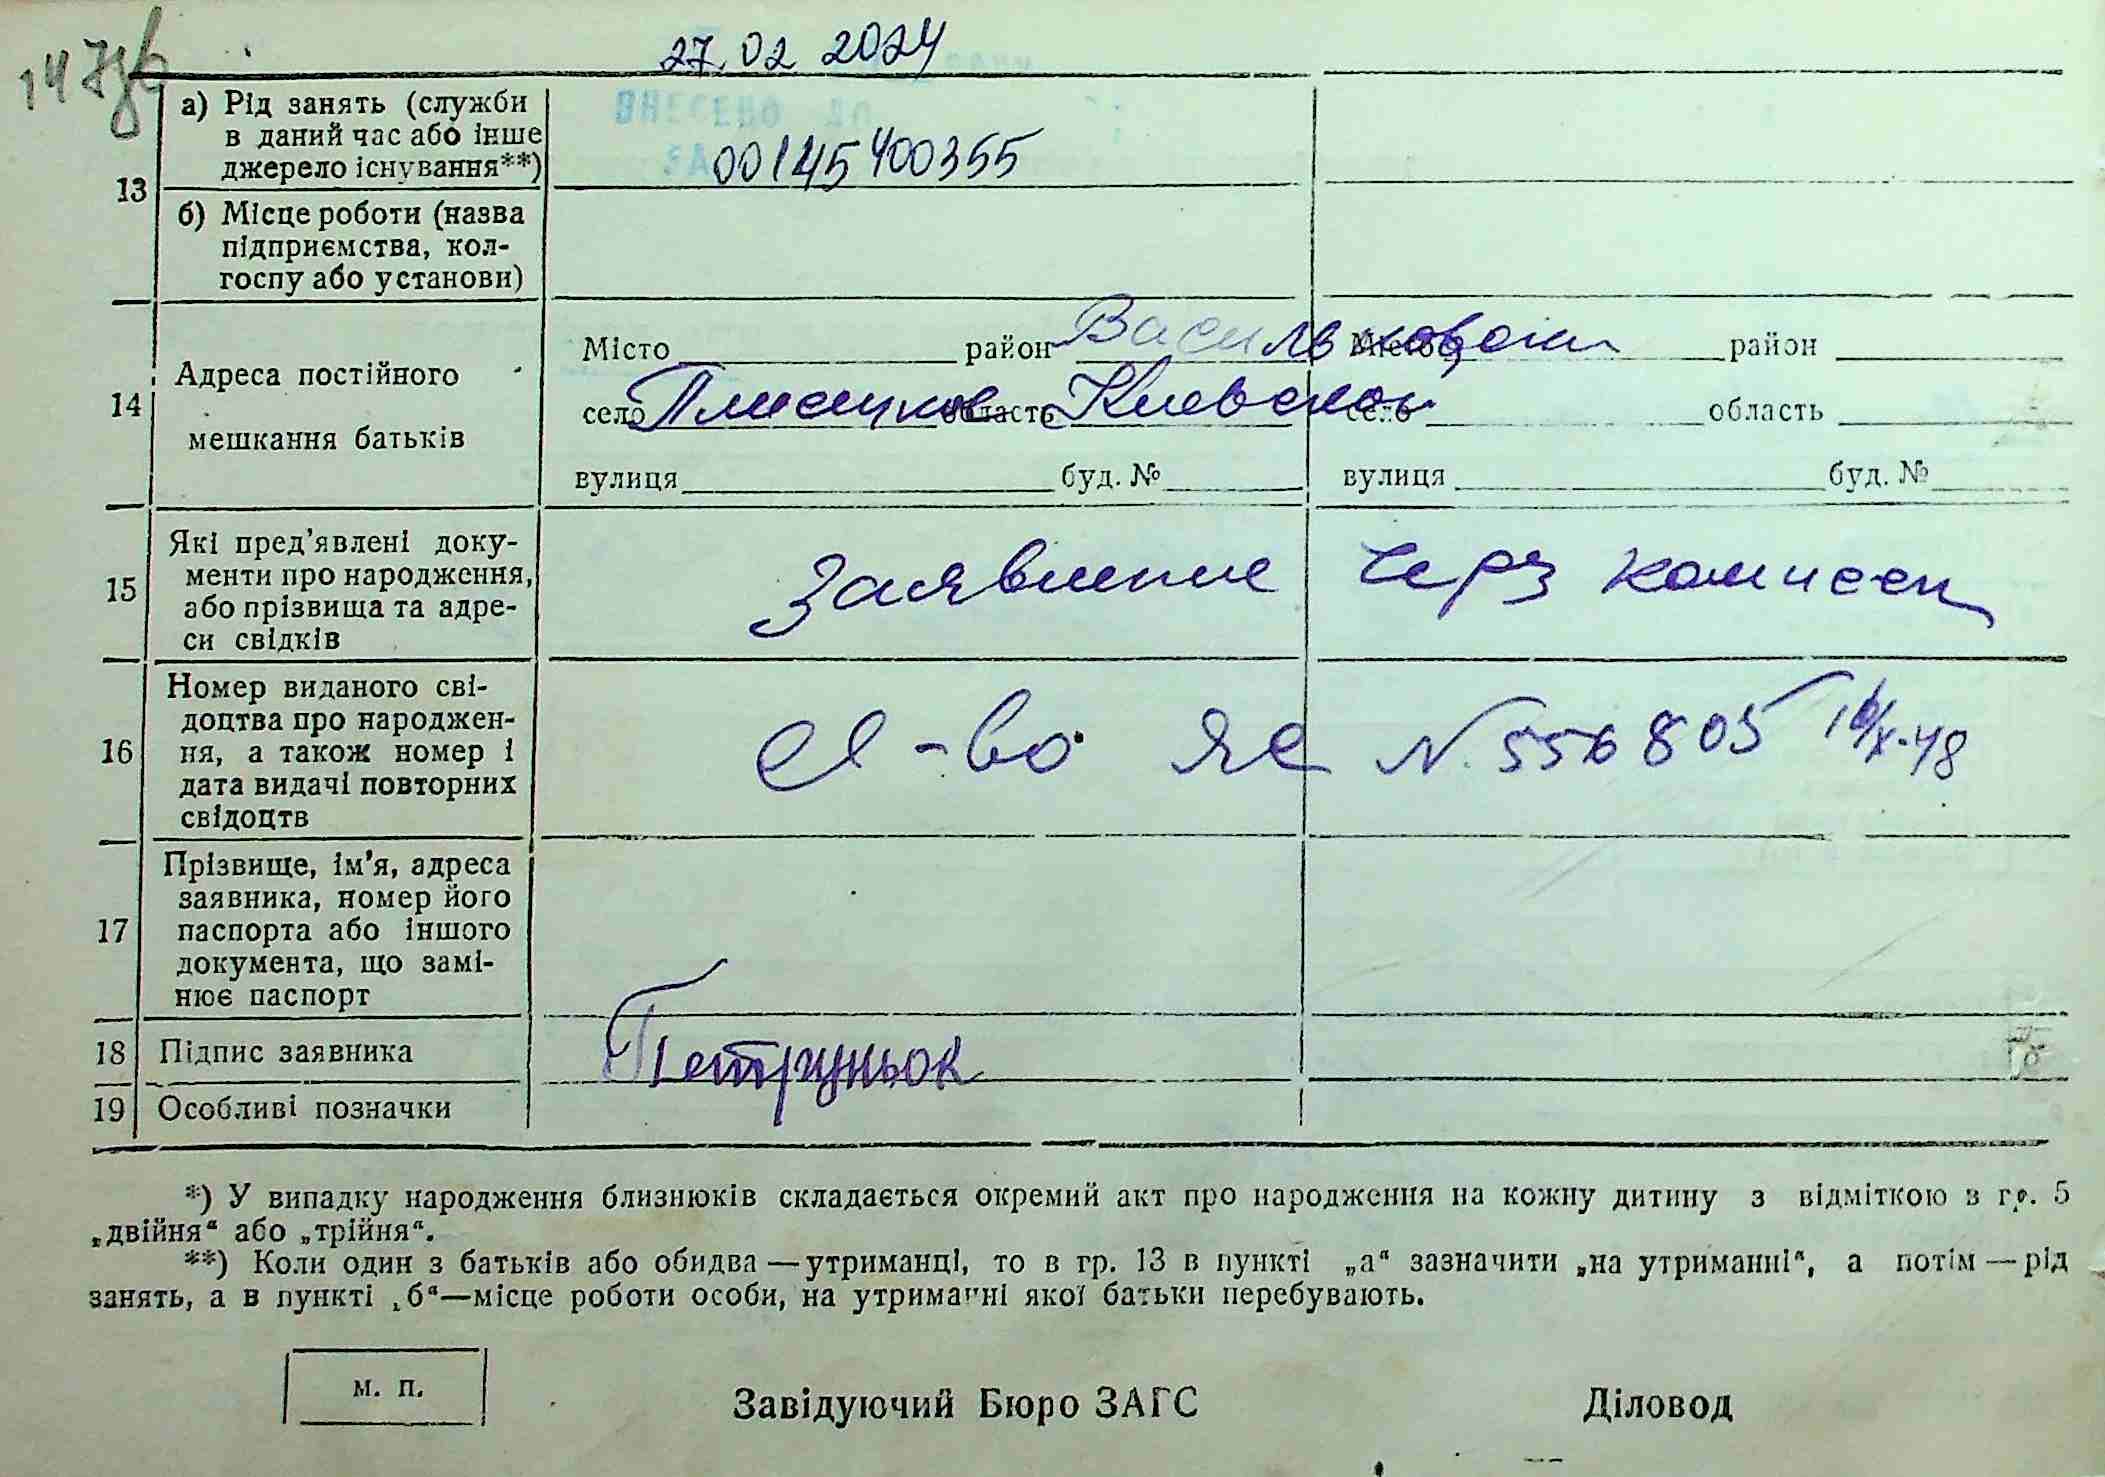 147зв
27.02 2024
ВНЕСЕНО ДО
а) Рід занять (служби
в даний час або інше
джерело існування**)
00145400355
13
б) Місце роботи (назва
підприємства, кол-
госпу або установи)
14
Адреса постійного
мешкання батьків
Місто район Васильковский
село Плисецкое область Киевской
вулиця буд. №
Місто район
село область
вулиця буд. №
15
Які пред’явлені доку-
менти про народження,
або прізвища та адре-
си свідків
Заявление Черз комисси
16
Номер виданого сві-
доцтва про народжен-
ня, а також номер і
дата видачі повторних
свідоцтв
св-во ЯЄ N 556805 16/X-48
17
Прізвище, ім’я, адреса
заявника, номер його
паспорта або іншого
документа, що замі-
нює паспорт
18 Підпис заявника Петруньок
19 Особливі позначки
*) У випадку народження близнюків складається окремий акт про народження на кожну дитину з відміткою в гр. 5
„двійня“ або „трійня“.
**) Коли один з батьків або обидва — утриманці, то в гр. 13 в пункті „а“ зазначити „на утриманні“, а потім — рід
занять, а в пункті „б“ — місце роботи особи, на утриманні якої батьки перебувають.
м. п.
Завідуючий Бюро ЗАГС Діловод